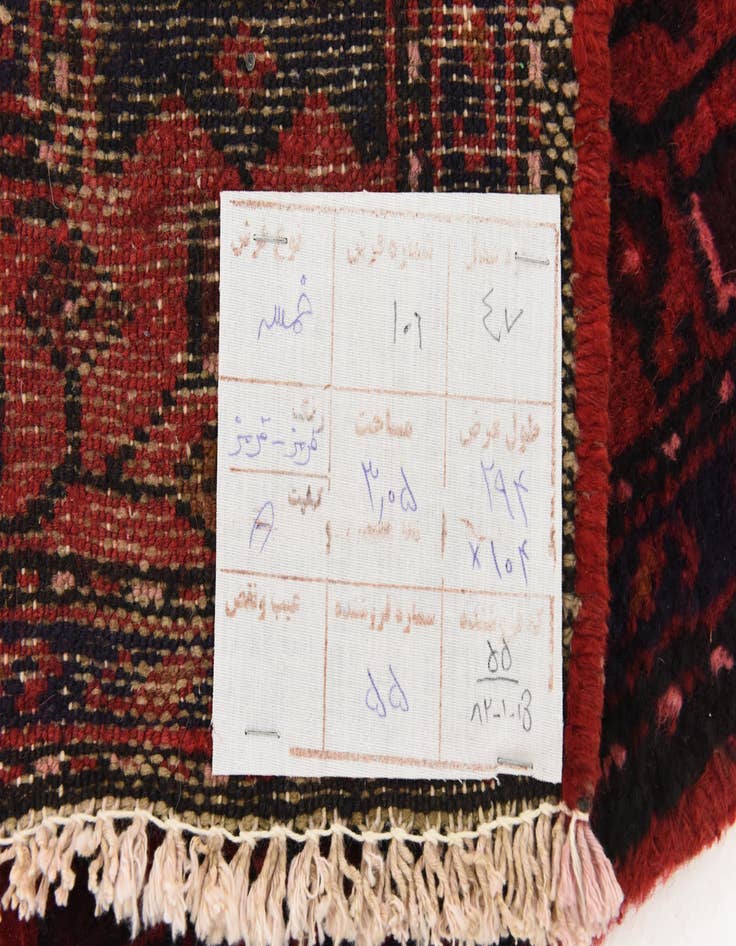 نوع فرش شماره فرش شماره عدل
خمسه ۱۰۶ ۴۷
رنگ مساحت طول عرض
قرمز - قرمز ۳,۰۵ ۲۹۴
کیفیت
A ×۱۰۴
عیب و نقص شماره فروشنده کد فروشنده
۵۵ ۵۵